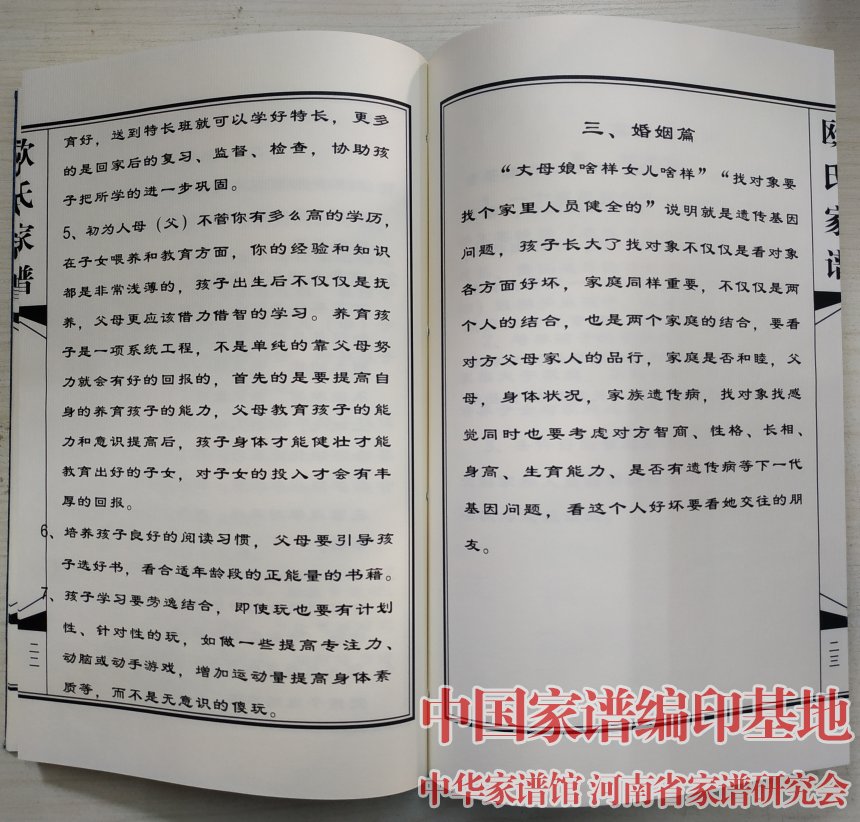 欧氏家谱
育好，送到特长班就可以学好特长，更多
的是回家后的复习、监督、检查，协助孩
子把所学的进一步巩固。
5、初为人母（父）不管你有多么高的学历，
在子女喂养和教育方面，你的经验和知识
都是非常浅薄的，孩子出生后不仅仅是抚
养，父母更应该借力借智的学习。养育孩
子是一项系统工程，不是单纯的靠父母努
力就会有好的回报的，首先的是要提高自
身的养育孩子的能力，父母教育孩子的能
力和意识提高后，孩子身体才能健壮才能
教育出好的子女，对子女的投入才会有丰
厚的回报。
6、培养孩子良好的阅读习惯，父母要引导孩
子选好书，看合适年龄段的正能量的书籍。
7、孩子学习要劳逸结合，即使玩也要有计划
性、针对性的玩，如做一些提高专注力、
动脑或动手游戏，增加运动量提高身体素
质等，而不是无意识的傻玩。
二二
三、婚姻篇
“丈母娘啥样女儿啥样”“找对象要
找个家里人员健全的”说明就是遗传基因
问题，孩子长大了找对象不仅仅是看对象
各方面好坏，家庭同样重要，不仅仅是两
个人的结合，也是两个家庭的结合，要看
对方父母家人的品行，家庭是否和睦，父
母，身体状况，家族遗传病，找对象找感
觉同时也要考虑对方智商、性格、长相、
身高、生育能力、是否有遗传病等下一代
基因问题，看这个人好坏要看她交往的朋
友。
欧氏家谱
二三
中国家谱编印基地
中华家谱馆 河南省家谱研究会